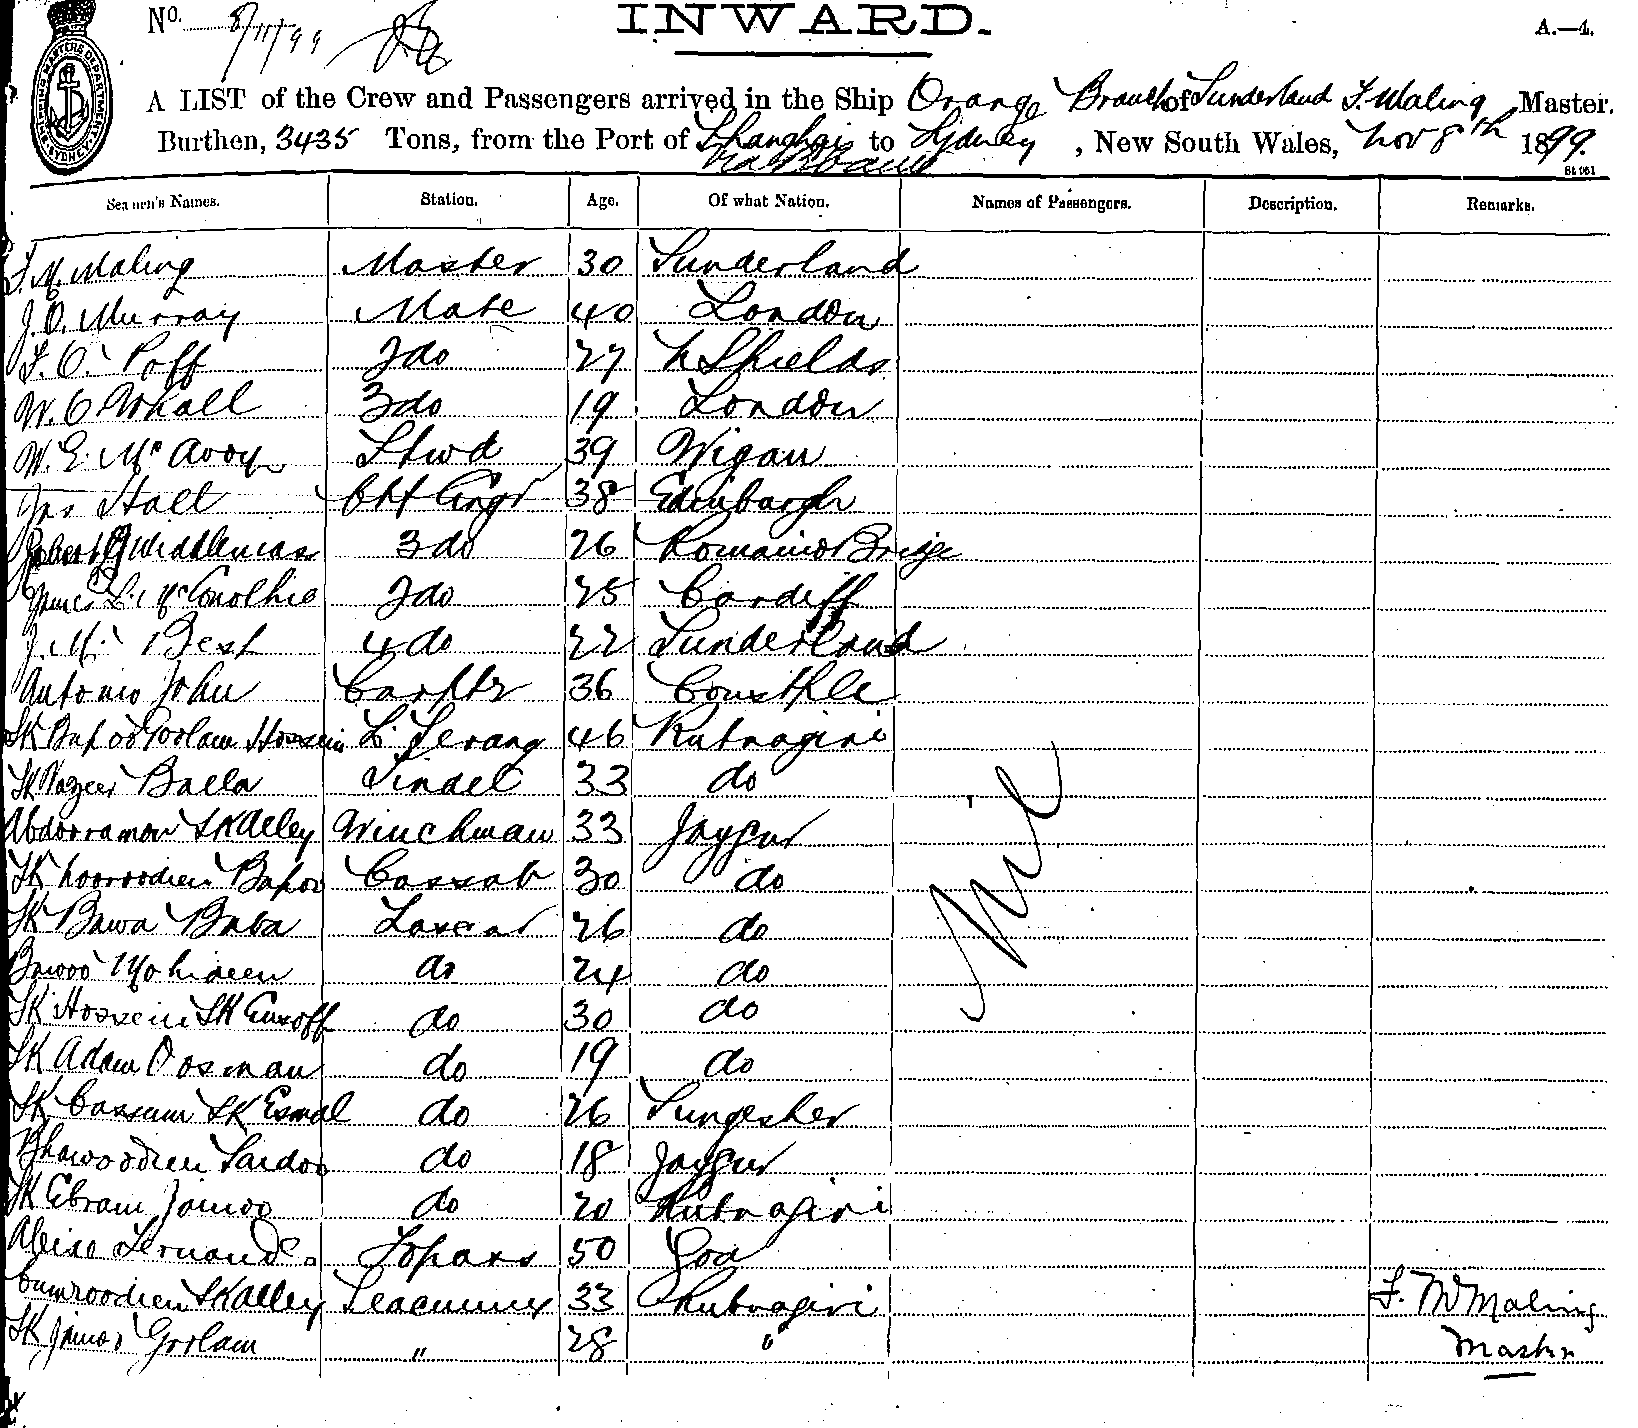 No. 8/11/99
INWARD.
A.—4.
SHIPPING MASTERS DEPARTMENT SYDNEY
A LIST of the Crew and Passengers arrived in the Ship Orange Branch of Sunderland F. Maling Master.
Burthen, 3435 Tons, from the Port of Shanghai to Sydney, New South Wales, Nov 8th 1899.
Seamen's Names. Station. Age. Of what Nation. Names of Passengers. Description. Remarks.
F. M. Maling Master 30 Sunderland
J. O. Murray Mate 40 London
F. O. Poff 2do 27 N Shields
W. C Whall 3do 19 London
W. E. McAvoy Stwd 39 Wigan
Jas Hall Ch Engr 38 Edinburgh
Robert Middlemass 3do 26 Romanno Brige
James 2do 25 Cardiff
J. M. Best 4do 22 Sunderland
Antonio John Carptr 36 Constple
SK Bapoo Goolam Hossein L. Serang 46 Rutnagiri
SK Balla Tindel 33 do
Abdorramon SK Alley Winchman 33 Jaygur
SK Nooroodien Bapoo Cassab 30 do
SK Bawa Baba Lascar 26 do
Bawoo Mohideen do 24 do
SK Hossein SK Eusoff do 30 do
SK Adam Oosman do 19 do
SK Cassum SK Esmal do 26 Sungesher
Bhawoodien Saidoo do 18 Jaygur
SK Ebram Jainoo do 20 Rutnagiri
Nil
Aleixo Fernandes Topass 50 Goa
Cumroodien SK Alley Seacunny 33 Rutnagiri F. M Maling
SK Goolam " 28 " Master